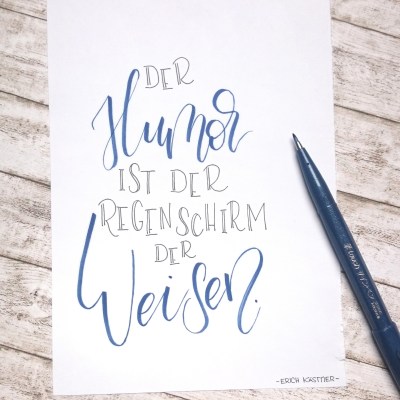 DER
Humor
IST DER
REGENSCHIRM
DER
Weisen.
-ERICH KÄSTNER-